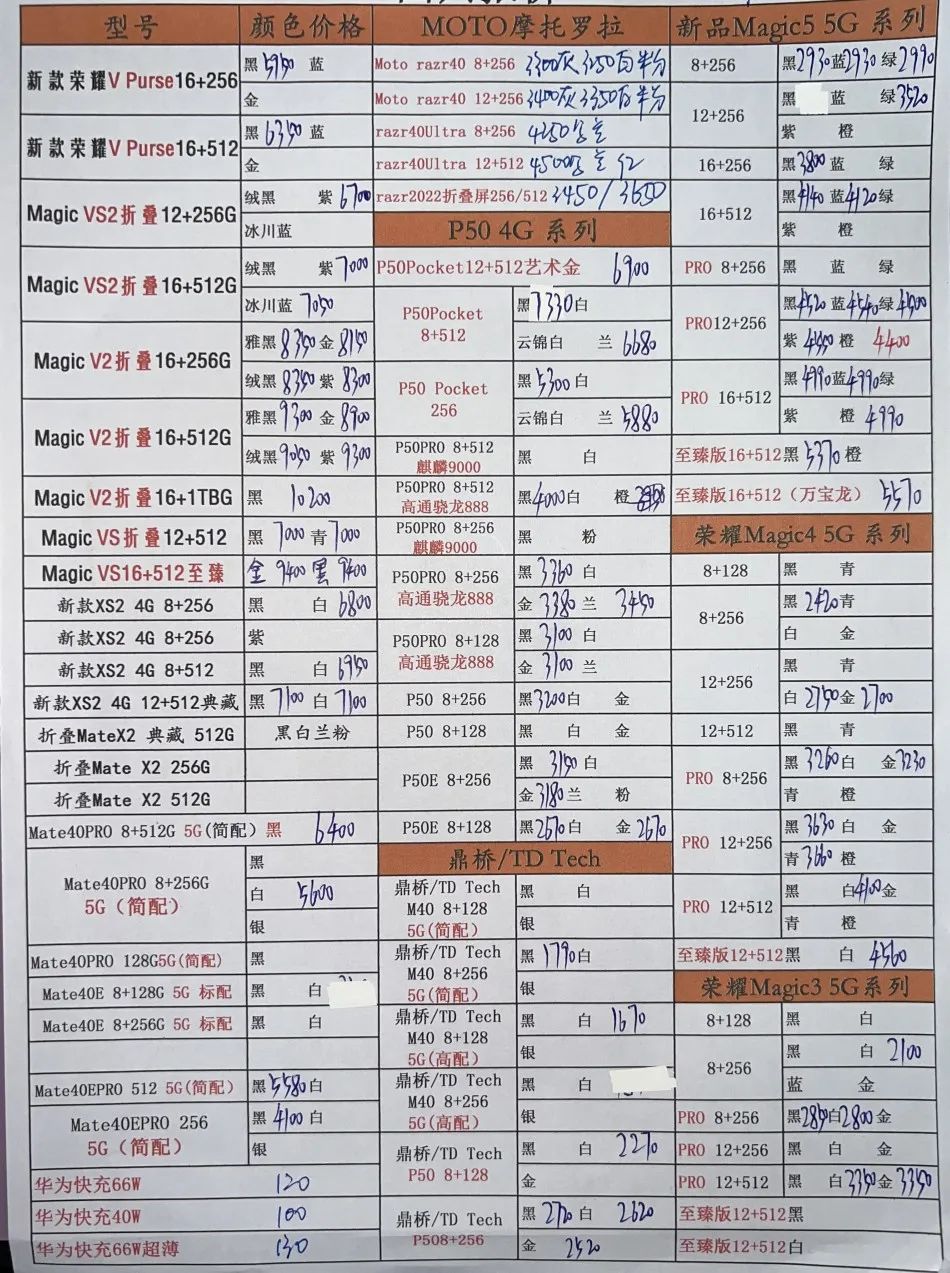 型号 颜色价格
新款荣耀V Purse16+256 黑 5950 蓝
金
新款荣耀V Purse16+512 黑 6350 蓝
金
Magic VS2折叠12+256G 绒黑 紫 6700
冰川蓝
Magic VS2折叠16+512G 绒黑 紫 7000
冰川蓝 7050
Magic V2折叠16+256G 雅黑 8350 金 8150
绒黑 8350 紫 8300
Magic V2折叠16+512G 雅黑 9300 金 8900
绒黑 9050 紫 9300
Magic V2折叠16+1TBG 黑 10200
Magic VS折叠12+512 黑 7000 青 7000
Magic VS16+512至臻 金 9400 黑 9400
新款XS2 4G 8+256 黑 白 6800
新款XS2 4G 8+256 紫
新款XS2 4G 8+512 黑 白 6950
新款XS2 4G 12+512典藏 黑 7100 白 7100
折叠MateX2 典藏 512G 黑白兰粉
折叠Mate X2 256G
折叠Mate X2 512G
Mate40PRO 8+512G 5G(简配) 黑 6400
Mate40PRO 8+256G 5G（简配） 黑
白 5600
银
Mate40PRO 128G5G(简配) 黑
Mate40E 8+128G 5G 标配 黑 白
Mate40E 8+256G 5G 标配 黑 白
Mate40EPRO 512 5G(简配) 黑 5580 白
Mate40EPRO 256 5G（简配） 黑 4100 白
银
华为快充66W 120
华为快充40W 100
华为快充66W超薄 130
MOTO摩托罗拉
Moto razr40 8+256 3300灰 3250白 半分
Moto razr40 12+256 3400灰 3350白 半分
razr40Ultra 8+256 4250
razr40Ultra 12+512 4500 红
razr2022折叠屏256/512 3450/3650
P50 4G 系列
P50Pocket12+512艺术金 6900
P50Pocket 8+512 黑 7330 白
云锦白 兰 6680
P50 Pocket 256 黑 5300 白
云锦白 兰 5880
P50PRO 8+512 麒麟9000 黑 白
P50PRO 8+512 高通骁龙888 黑 4000 白 橙
P50PRO 8+256 麒麟9000 黑 粉
P50PRO 8+256 高通骁龙888 黑 3360 白
金 3380 兰 3450
P50PRO 8+128 高通骁龙888 黑 3100 白
金 3100 兰
P50 8+256 黑 3200 白 金
P50 8+128 黑 白 金
P50E 8+256 黑 3150 白
金 3180 兰 粉
P50E 8+128 黑 2670 白 金 2670
鼎桥/TD Tech
鼎桥/TD Tech M40 8+128 5G(简配) 黑 白
银
鼎桥/TD Tech M40 8+256 5G(简配) 黑 1790 白
银
鼎桥/TD Tech M40 8+128 5G(高配) 黑 白 1670
银
鼎桥/TD Tech M40 8+256 5G(高配) 黑 白
银
鼎桥/TD Tech P50 8+128 黑 白 2270
金
鼎桥/TD Tech P508+256 黑 2720 白 2620
金 2520
新品Magic5 5G 系列
8+256 黑 2930 蓝 2930 绿 2990
12+256 黑 蓝 绿 3520
紫 橙
16+256 黑 3800 蓝 绿
16+512 黑 4140 蓝 4120 绿
紫 橙
PRO 8+256 黑 蓝 绿
PRO12+256 黑 4520 蓝 4540 绿 4500
紫 4450 橙 4400
PRO 16+512 黑 4990 蓝 4990 绿
紫 橙 4990
至臻版16+512 黑 5370 橙
至臻版16+512（万宝龙） 5570
荣耀Magic4 5G 系列
8+128 黑 青
8+256 黑 2420 青
白 金
12+256 黑 青
白 2750 金 2700
12+512 黑 青
PRO 8+256 黑 3260 白 金 3230
青 橙
PRO 12+256 黑 3630 白 金
青 3660 橙
PRO 12+512 黑 白 4100 金
青 橙
至臻版12+512 黑 白 4560
荣耀Magic3 5G系列
8+128 黑 白
8+256 黑 白 2100
蓝 金
PRO 8+256 黑 2850 白 2800 金
PRO 12+256 黑 白 金
PRO 12+512 黑 白 3350 金 3350
至臻版12+512黑
至臻版12+512白